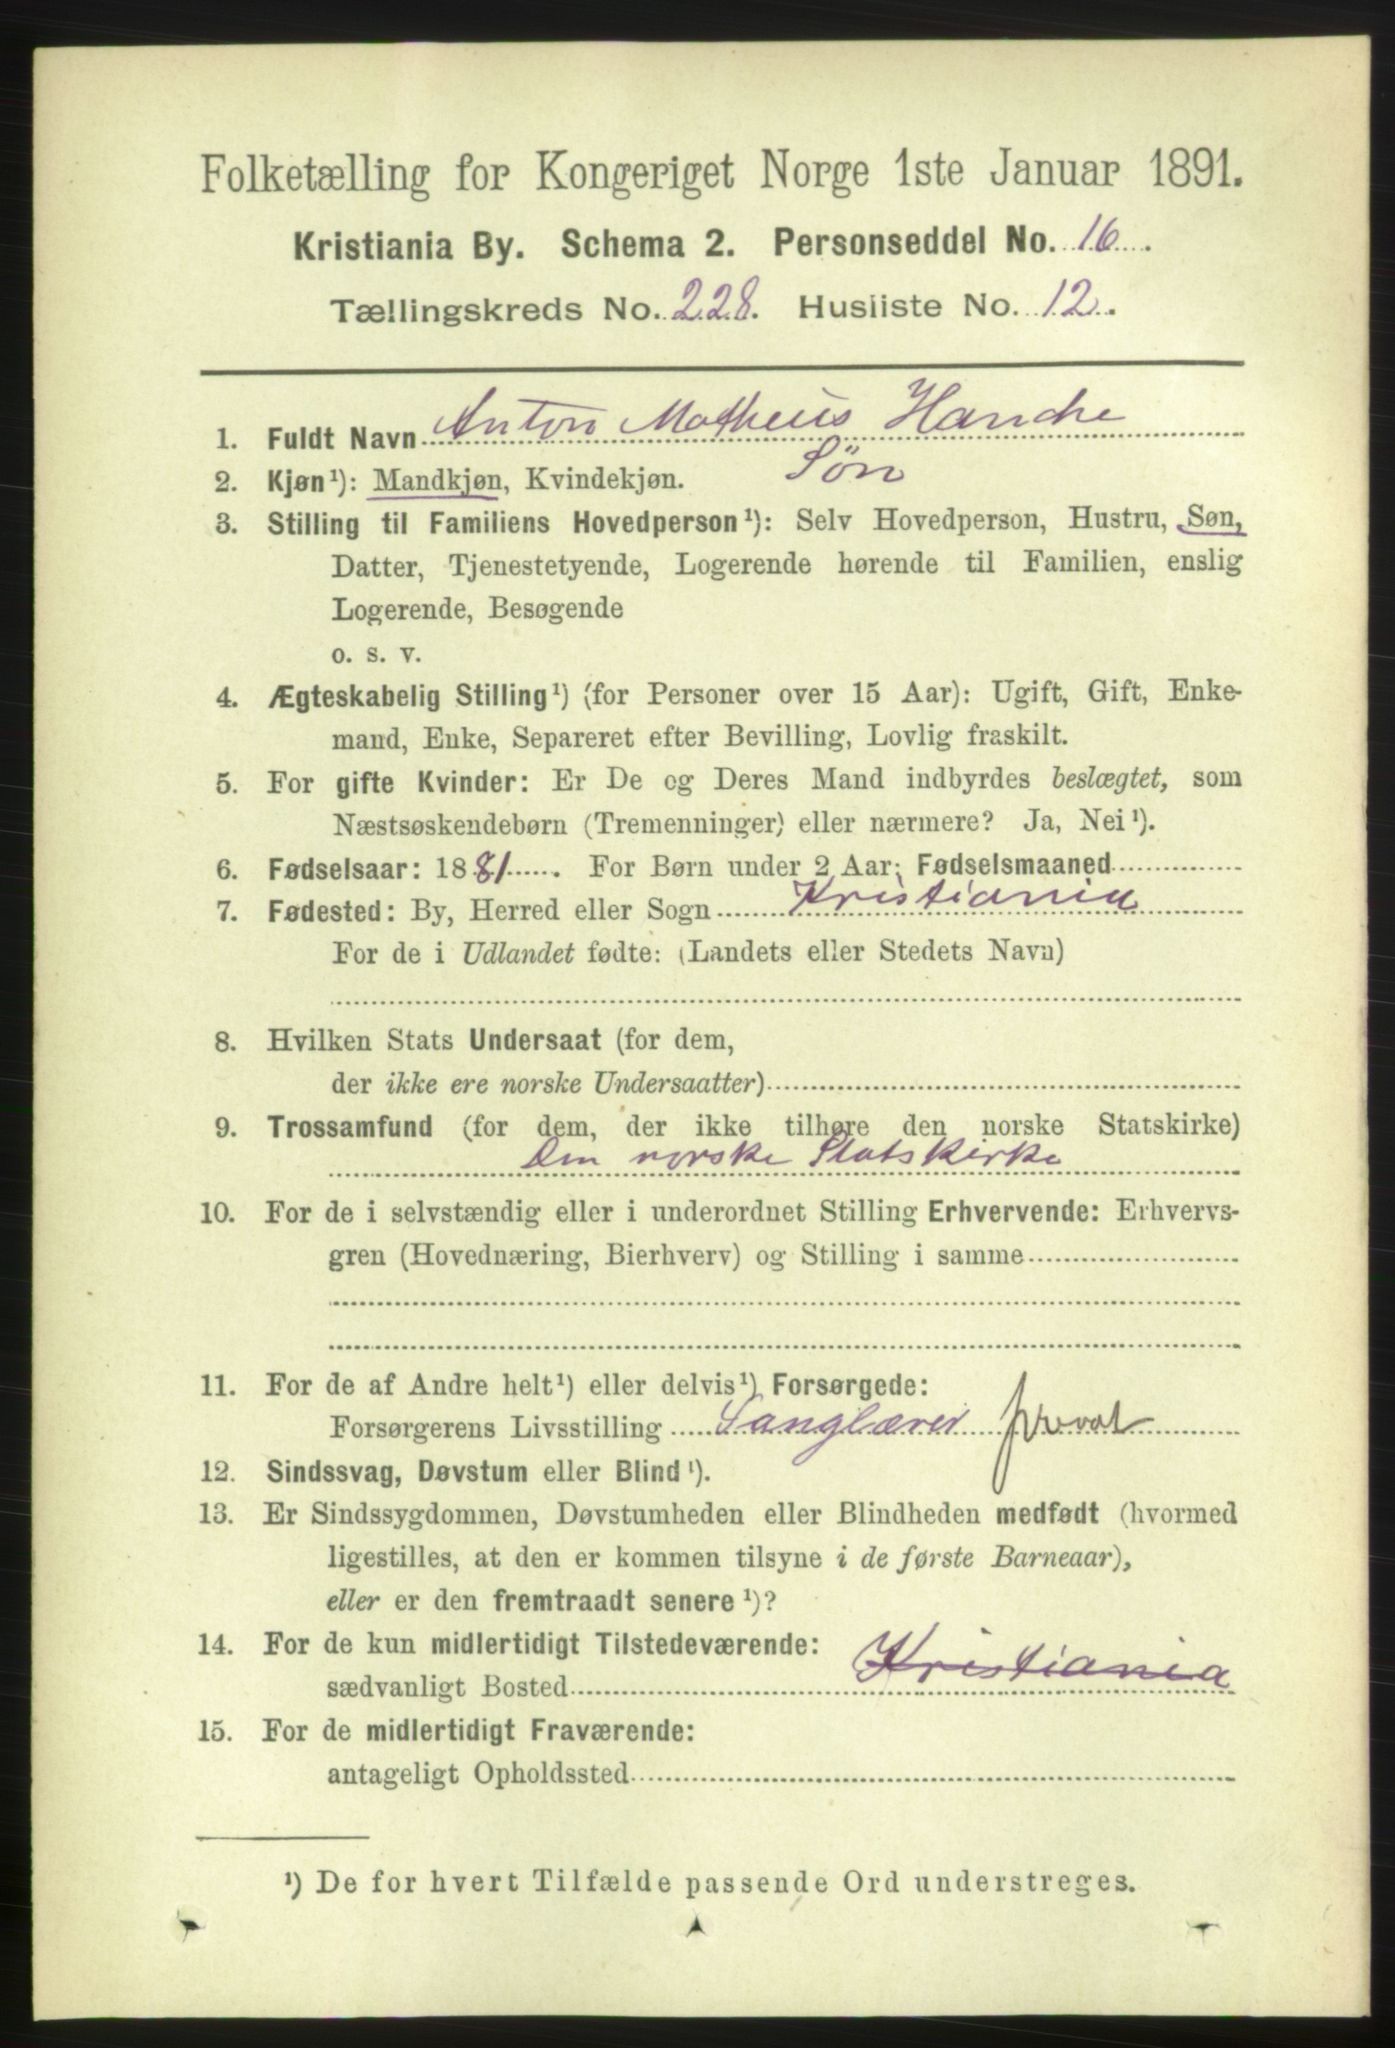 Folketælling for Kongeriget Norge 1ste Januar 1891.
Kristiania By. Schema 2. Personseddel No. 16.
Tællingskreds No. 228. Husliste No. 12.
1. Fuldt Navn Anton Matheus Hanche
2. Kjøn¹): Mandkjøn, Kvindekjøn. Søn
3. Stilling til Familiens Hovedperson¹): Selv Hovedperson, Hustru, Søn,
Datter, Tjenestetyende, Logerende hørende til Familien, enslig
Logerende, Besøgende
o. s. v.
4. Ægteskabelig Stilling¹) (for Personer over 15 Aar): Ugift, Gift, Enke-
mand, Enke, Separeret efter Bevilling, Lovlig fraskilt.
5. For gifte Kvinder: Er De og Deres Mand indbyrdes beslægtet, som
Næstsøskendebørn (Tremenninger) eller nærmere? Ja, Nei¹).
6. Fødselsaar: 1881. For Børn under 2 Aar: Fødselsmaaned
7. Fødested: By, Herred eller Sogn Kristiania
For de i Udlandet fødte: (Landets eller Stedets Navn)
8. Hvilken Stats Undersaat (for dem,
der ikke ere norske Undersaatter)
9. Trossamfund (for dem, der ikke tilhøre den norske Statskirke)
Den norske Statskirke
10. For de i selvstændig eller i underordnet Stilling Erhvervende: Erhvervs-
gren (Hovednæring, Bierhverv) og Stilling i samme
11. For de af Andre helt¹) eller delvis¹) Forsørgede:
Forsørgerens Livsstilling Sanglærer privat
12. Sindssvag, Døvstum eller Blind¹).
13. Er Sindssygdommen, Døvstumheden eller Blindheden medfødt (hvormed
ligestilles, at den er kommen tilsyne i de første Barneaar),
eller er den fremtraadt senere¹)?
14. For de kun midlertidigt Tilstedeværende:
sædvanligt Bosted Kristiania
15. For de midlertidigt Fraværende:
antageligt Opholdssted
¹) De for hvert Tilfælde passende Ord understreges.